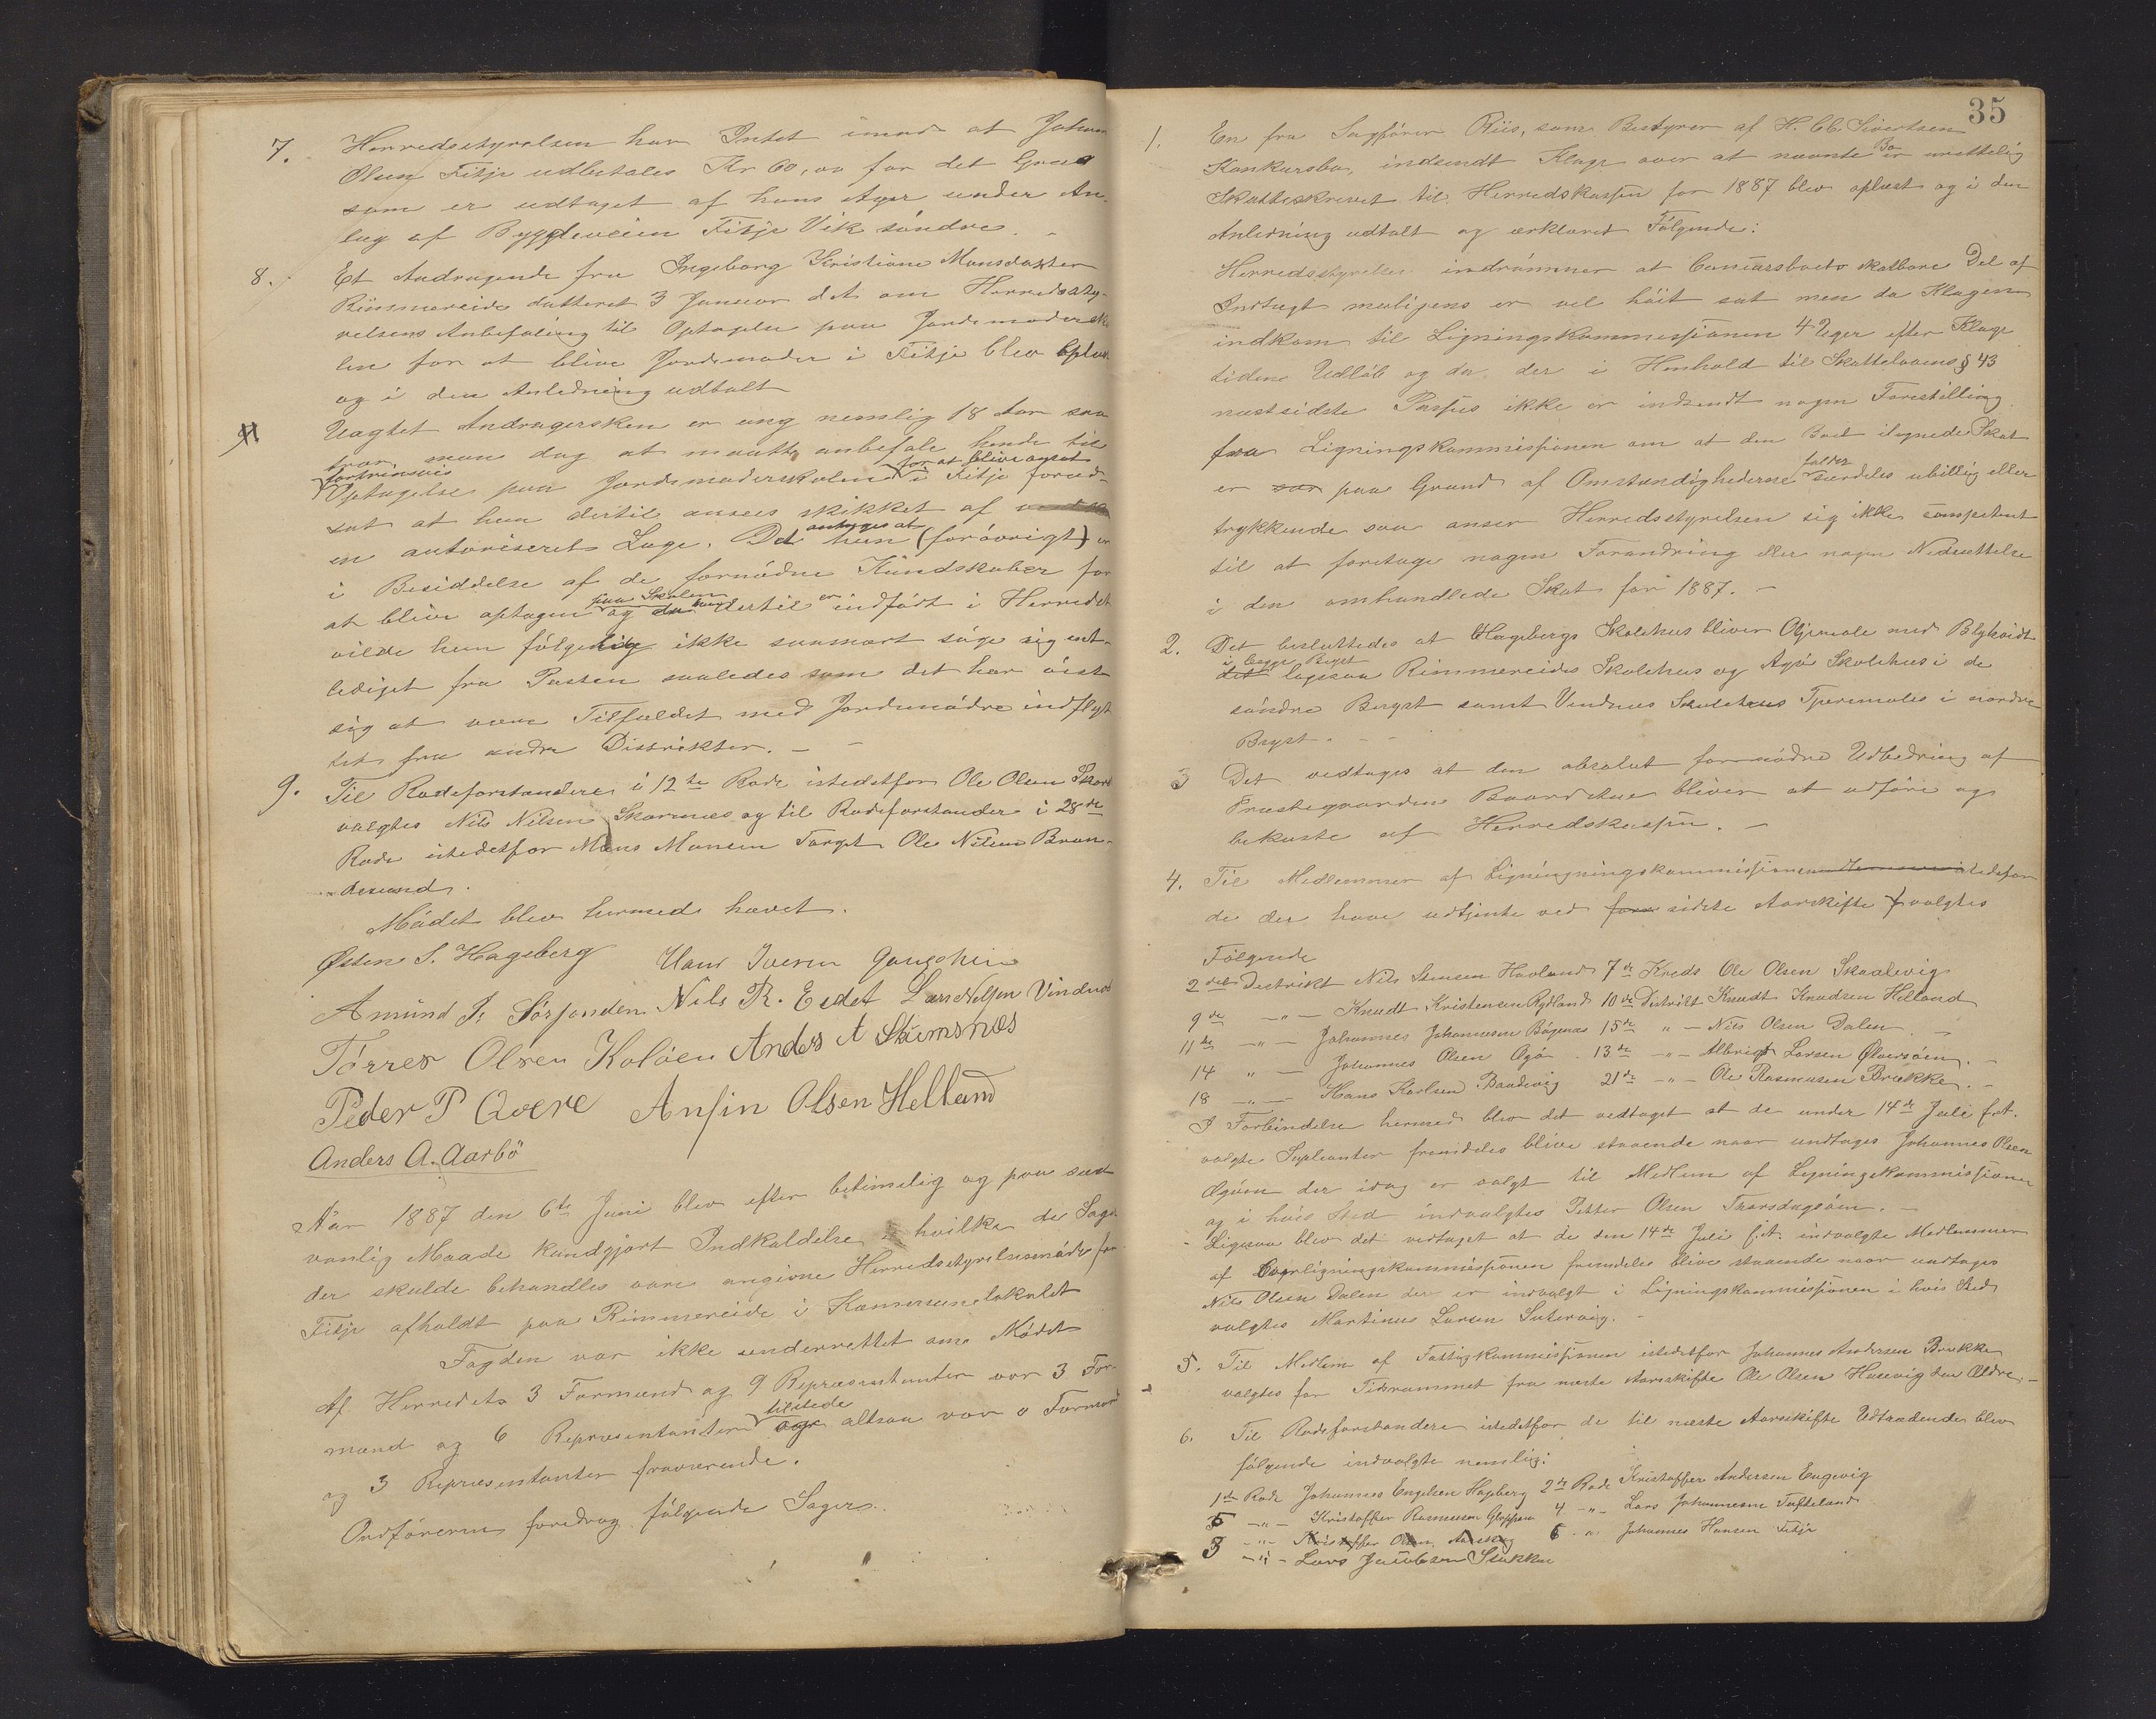 7. Herredsstyrelsen har Intet imod at Johan
Olsen Fitje udbetales Kr 60,00 for det Grus
som er udtaget af hans Ager under An-
lag af Byggdeveien Fitje Vik søndre. -
8. Et Andragende fra Ingeborg Kristiane Monsdatter
Rimmereide datteret 3 Januar d.A. om Herredssty-
relsens Anbefaling til Optagelse paa Jordemodersko
len for at blive Jordemoder i Fitje blev oplæst
og i den Anledning udtalt
Uagtet Andragersken er ung nemlig 18 Aar saa
tror man dog at maatte anbefale hende til
fortrinsvis for at blive ansat
Optagelse paa Jordemoderskolen i Fitje forud-
sat at hun dertil ansees skikket af
en autoriseret Læge. Da antages at hun (forøvrigt) er
i Besiddelse af de fornødne Kundskaber for
paa Skolen er
at blive optagen og da hun dertil indfødt i Herredet
vilde hun følgelig ikke saasnart søge sig ent-
lediget fra Posten saaledes som det har vist
sig at være Tilfældet med Jordemødre indflyt
tet fra andre Distrikter. - -
9. Til Rodeforstandere i 12te Rode istedetfor Ole Olsen Skor
valgtes Nils Nilsen Skormes og til Rodeforstander i 28de
Rode istedetfor Mons Monsen Torget Ole Nilsen Bran-
desund.
Mødet blev hermed hævet.
Østen S. Hageberg Hans Iversen
Amund J. Sørfonden Nils R. Eidet Lars Nelsen Vindnes
Tørres Olsen Koløen Anders A Skumsnes
Peder P Qvere Ansin Olsen Helland
Anders A. Aarbø
Aar 1887 den 6te Juni blev efter betimelig og paa sæd
vanlig Maade kundgjort Indkaldelse i hvilke de Sage
der skulde behandles vare angivne Herredsstyrelsesmøde for
Fitje afholdt paa Rimmereide i Kommunelokalet
Fogden var ikke underrettet om Mødet
Af Herredets 3 Formænd og 9 Repræsentanter var 3 For-
tilstede
mænd og 6 Repræsentanter altsaa var 0 Formænd
og 3 Repræsentanter fraværende.
Ordføreren foredrog følgende Sager.
35
1. En fra Sagfører Riis, som Bestyrer af H. Sivertsen
Bo
Konkursbo, indsendt Klage over at nævnte er urettelig
Skatteskrevet til Herredskassen for 1887 blev oplæst og i den
Anledning udtalt og erklæret Følgende:
Herredsstyrelsen indrømmer at Concursboets skatbare Del af
Indtægt muligens er vel høit sat men da Klagen
indkom til Ligningskommissionen 4 Uger efter Klage
tidens Udløb og da der i Henhold til Skattelovens § 43
næstsidste Passus ikke er indsendt nogen Forestilling
fra Ligningskommissionen om at den Boet ilignede Skat
falder
er paa Grund af Omstændighederne særdeles ubillig eller
trykkende saa anser Herredsstyrelsen sig ikke competent
til at foretage nogen Forandring eller nogen Nedsættelse
i den omhandlede Skat for 1887. -
2. Det besluttedes at Hagebergs Skolehus bliver Oljemale med Blyhvidt
i begge Bryst
ligesaa Rimmereides Skolehus og Agø Skolehus i de
søndre Bryst samt Vindnes Skolehus Tjæremales i nordre
Bryst. - -
3 Det vedtages at den absolut fornødne Udbedring af
Præstegaardens Baardstue bliver at udføre og
bekoste af Herredskassen. -
4. Til Medlemmer af Ligningskommissionen istedetfor
de der have udtjente ved sidste Aarskifte valgtes
Følgende
2det Distrikt Nils Stensen Havland 7de Kreds Ole Olsen Skaalevig
9de -"- Knudt Kristensen Rydland 10de Distrikt Knudt Knudsen Helland
11te -"- Johannes Johannesen Bøgenes 15de " - Nils Olsen Dalen. -
14 " - Johannes Olsen Agø. 13de -"- Albrigt Larsen Ølversøen. -
18 -"- Hans Karlsen Bandevig 21de -"- Ole Rasmusen Brække. -
I Forbindelse hermed blev det vedtaget at de under 14de Juli f.A.
valgte Suplianter fremdeles blive staaende naar undtages Johannes Olsen
Agøen der idag er valgt til Medlem af Ligningskommissionen
og i hvis Sted indvalgtes Petter Olsen Thorsdagsøen. -
Ligesaa blev det vedtaget at de den 14de Juli f.A. indvalgte Medlemmer
af Overligningskommissionen fremdeles blive staaende naar undtages
Nils Olsen Dalen der er indvalgt i Ligningskommissionen i hvis Sted
valgtes Martinus Larsen Sætervig. -
5. Til Medlem af Fattigkommissionen istedetfor Johannes Andersen Brække
valgtes for Tidsrummet fra næste Aarsskifte Ole Olsen Husevig den Ældre. -
6. Til Rodeforstandere istedetfor de til næste Aarsskifte Udtrædende blev
følgende indvalgte nemlig:
1ste Rode Johannes Engelsen Hageberg 2de Rode Kristoffer Andersen Engevig
5 -"- Kristoffer Rasmusen Gloppen 4 -"- Lars Johannesen Tufteland
-"- Kristoffer Olsen Aarskog 6 - " Johannes Hansen Fitje
3 -"- Lars Jacobsen Stokken